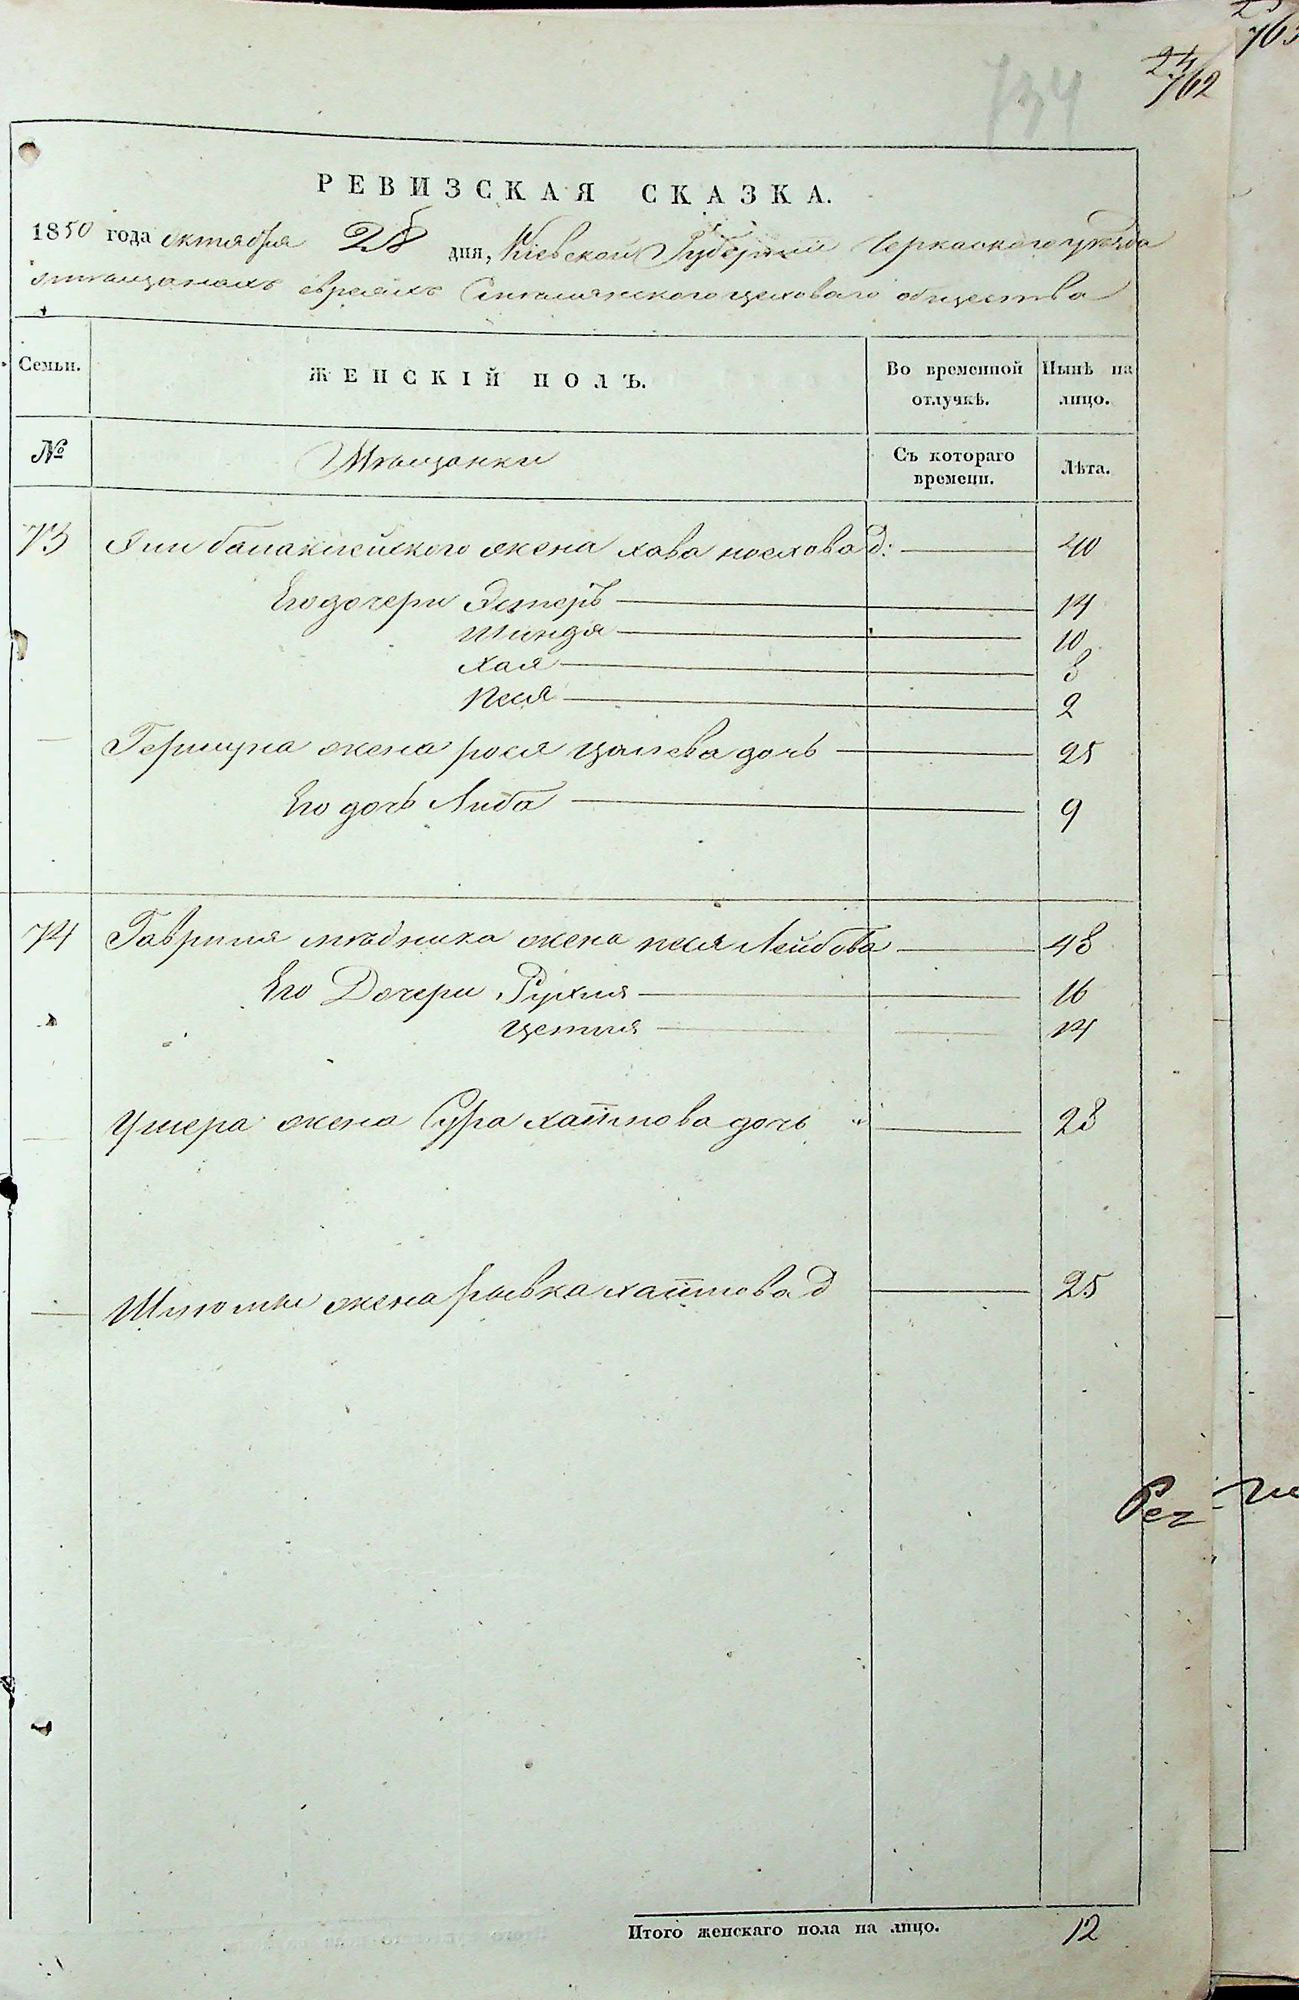 763
24
762
734
РЕВИЗСКАЯ СКАЗКА.
1850 года октября 28 дня, Кіевской Губерніи Черкаского уезда
мещанахъ евреяхъ Смелянского цехового общества
Семьи.
ЖЕНСКІЙ ПОЛЪ.
Во временной отлучкѣ.
Нынѣ на лицо.
№
Мещанки
Съ котораго времени.
Лѣта.
73 балаклейского жена хава д: 40
Его дочери Эстеръ 14
Шиндя 10
Хая 8
Песя 2
Гершуна жена рося цалева дочь 25
Его дочь Либа 9
74 Гавриля медника жена песя Лейбова 48
Его Дочери Рухля 16
Цетля 14
Ушера жена Сура хаимова дочь 28
Шлиомы жена рывка хаимова д 25
Рев
Итого женскаго пола на лицо. 12